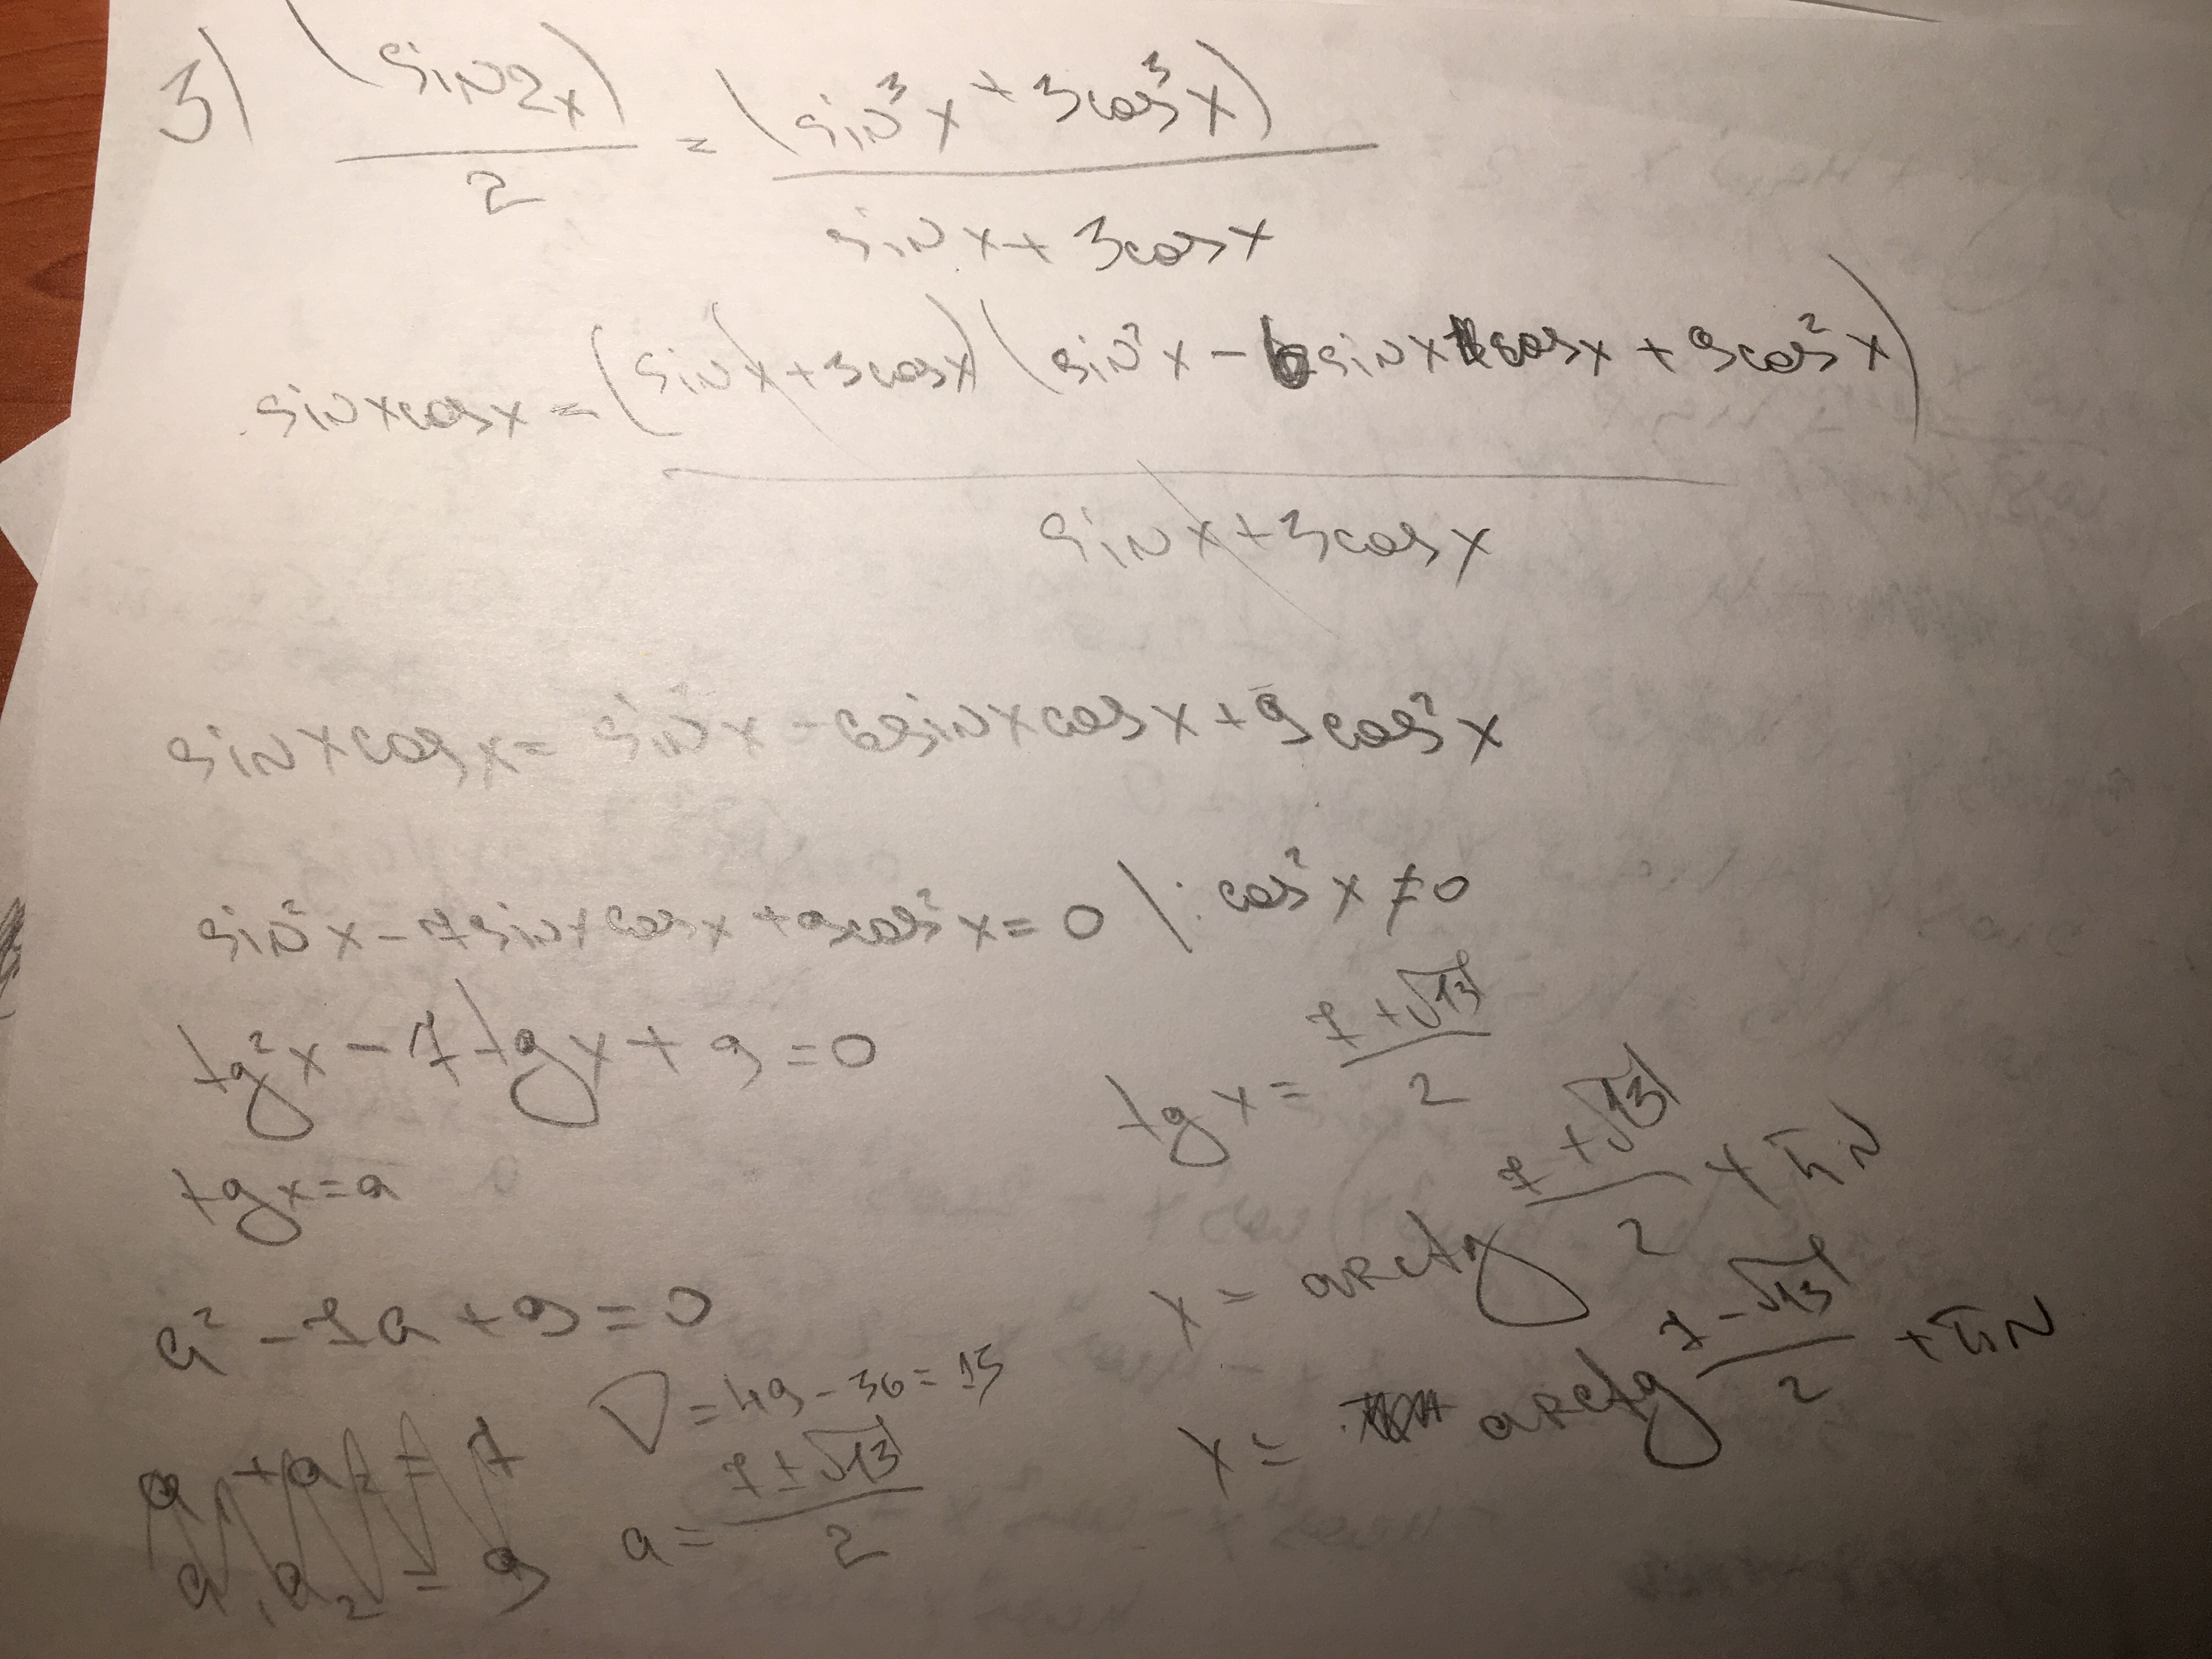 3) (sin2x)/2 = (sin³x + 3cos³x)/(sinx + 3cosx)
sinxcosx = (sinx + 3cosx)(sin²x - 6sinxcosx + 9cos²x)/(sinx + 3cosx)
sinxcosx = sin²x - 6sinxcosx + 9cos²x
sin²x - 7sinxcosx + 9cos²x = 0 | : cos²x ≠ 0
tg²x - 7tgx + 9 = 0
tgx = a
a² - 7a + 9 = 0
D = 49 - 36 = 13
a = (7 ± √13)/2
a + a₂ = 7
a₁a₂ = 9
tgx = (7 + √13)/2
x = arctg (7 + √13)/2 + πN
x = arctg (7 - √13)/2 + πN